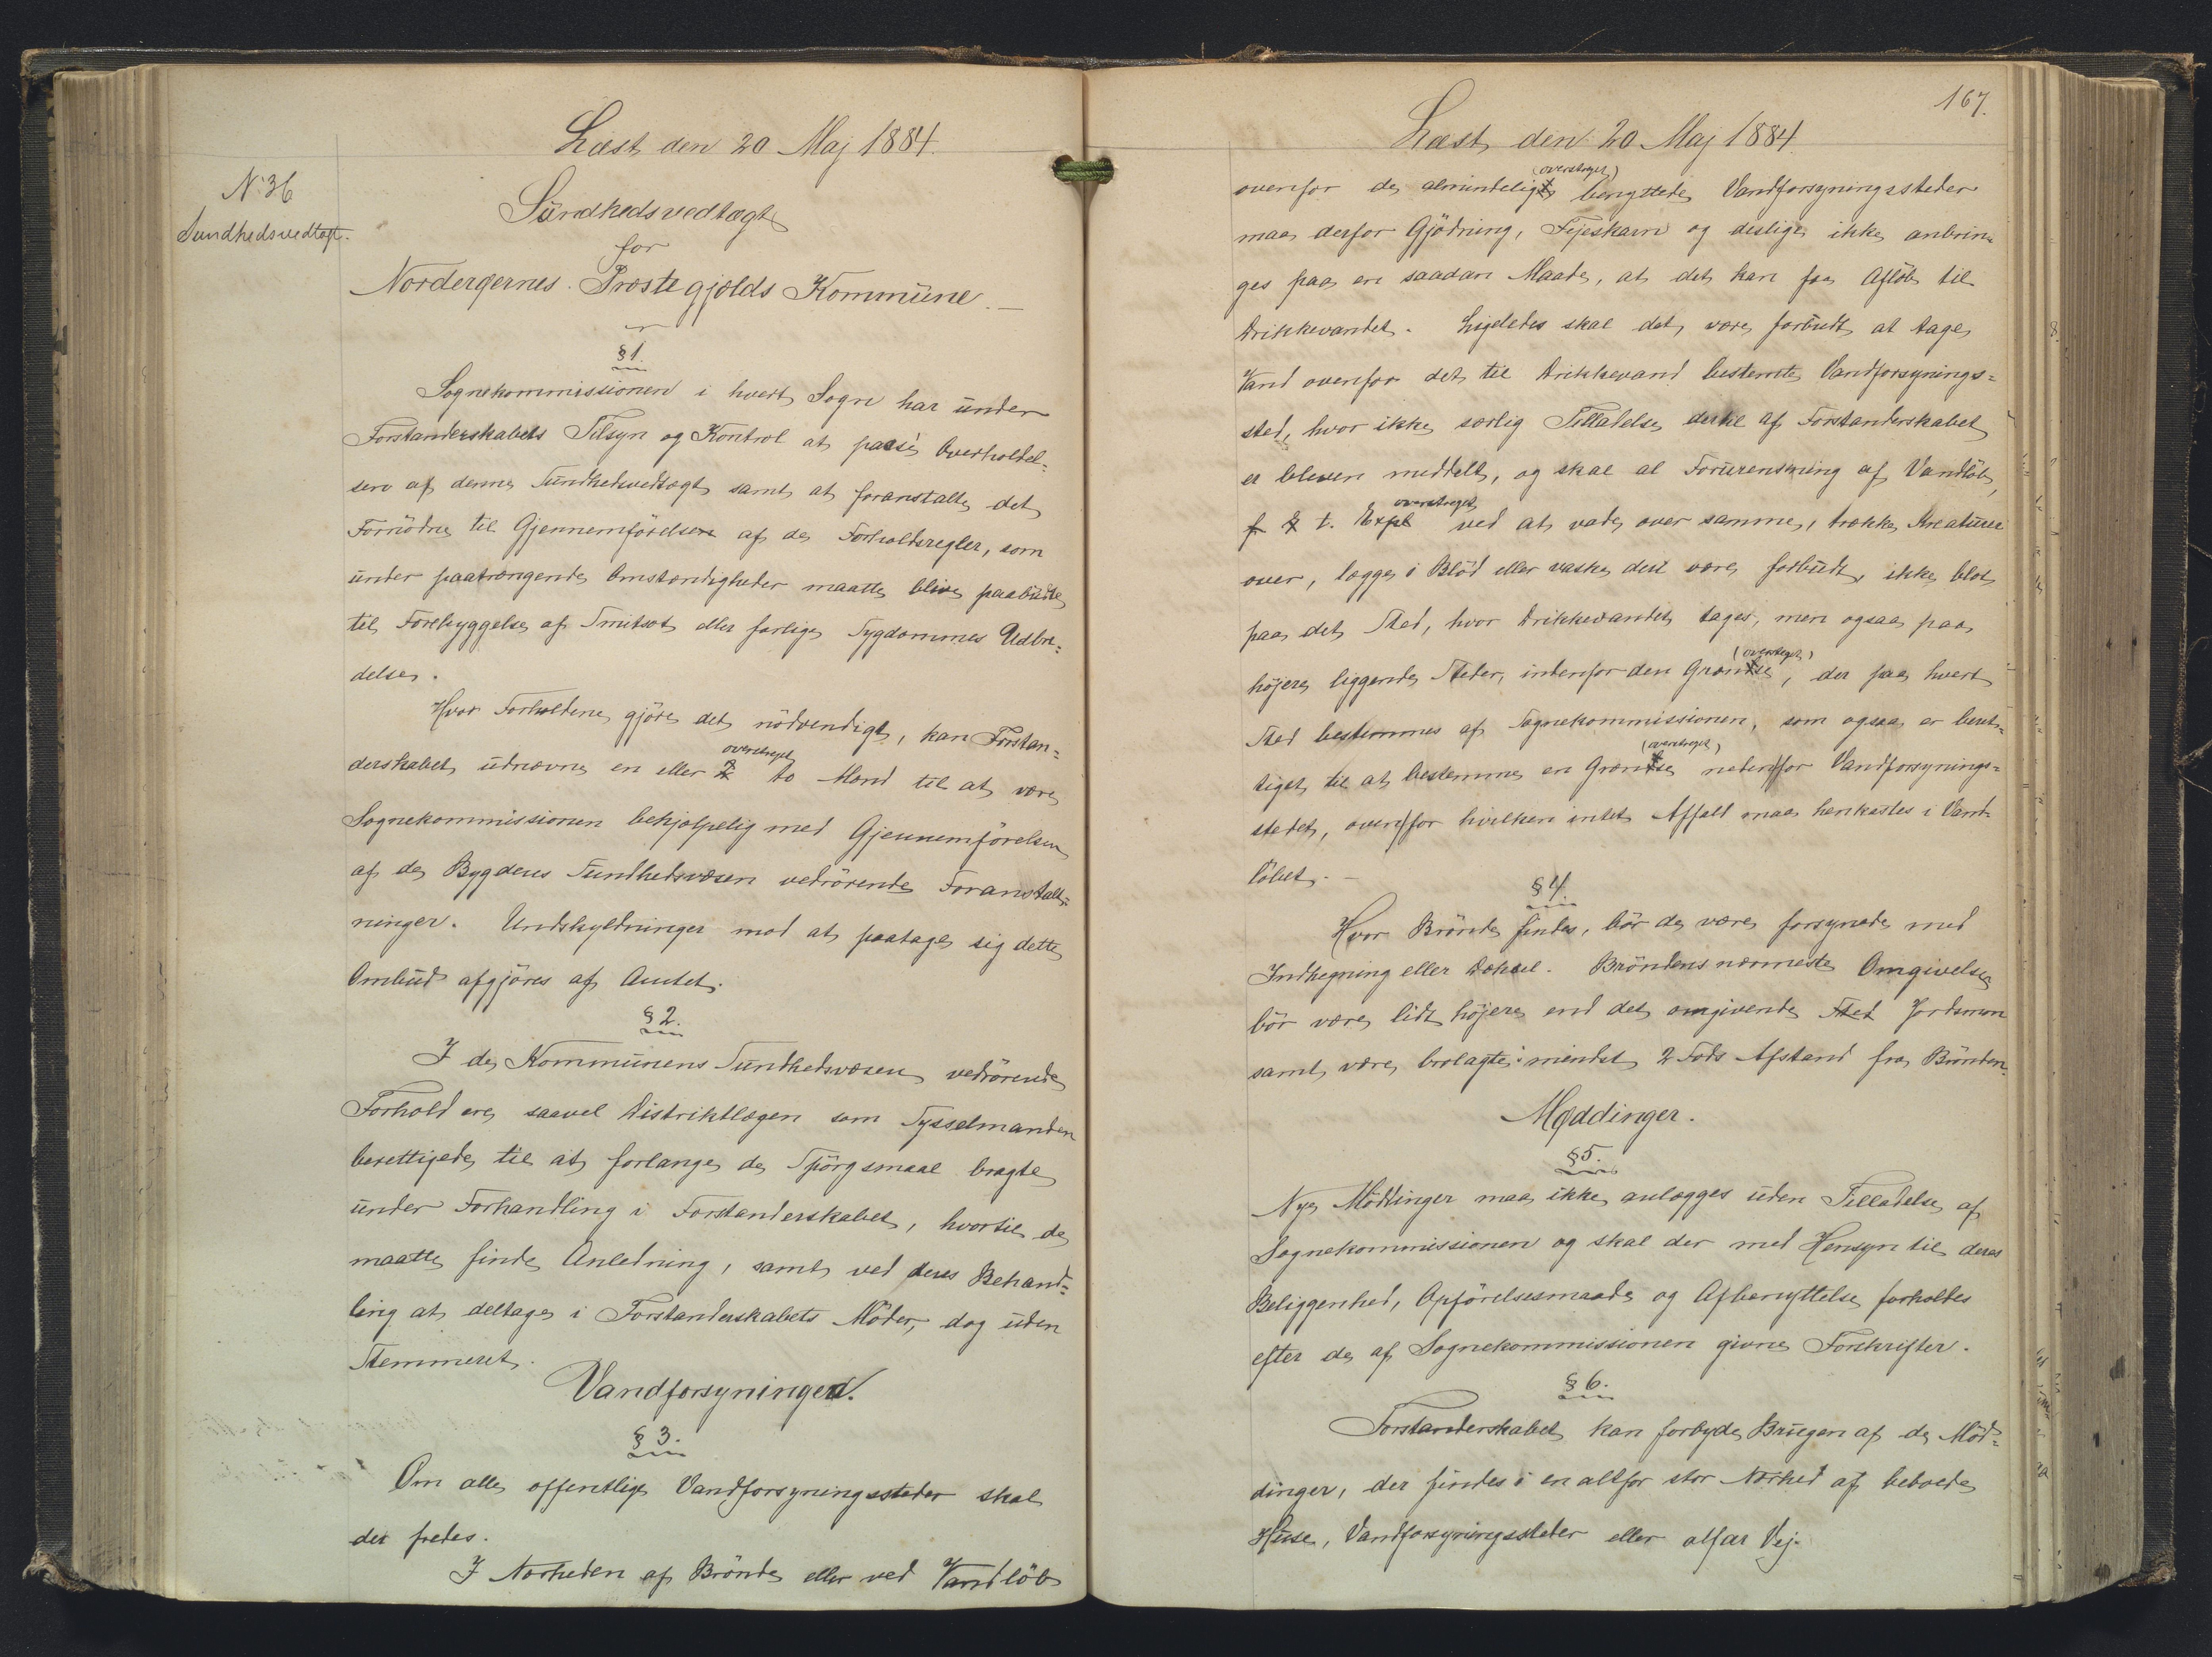 Læst den 20 Maj 1884.
No 36
Sundhedsvedtægt.
Sundhedsvedtægt
for
Norderøernes Præstegjælds Kommune.
§1.
Sognekommissionen i hvert Sogn har under
Forstanderskabets Tilsyn og Kontrol at passe Overholdel-
sen af denne Sundhedsvedtægt samt at foranstalte det
Fornødne til Gjennemførelsen af de Forholdsregler, som
under paatrængende Omstændigheder maatte blive paabudte
til Forebyggelse af Smitsot eller farlige Sygdommes Udbre-
delse.
Hvor Forholdene gjøre det nødvendigt, kan Forstan-
derskabet udnævne en eller 2 overstreget to Mænd til at være
Sognekommissionen behjælpelig med Gjennemførelsen
af de Bygdens Sundhedsvæsen vedrørende Foranstalt-
ninger. Undskyldninger mod at paatage sig dette
Ombud afgjøres af Amtet.
§2.
I de Kommunens Sundhedsvæsen vedrørende
Forhold ere saavel Distriktlægen som Sysselmanden
berettigede til at forlange de Spørgsmaal bragte
under Forhandling i Forstanderskabet, hvortil de
maatte finde Anledning, samt ved deres Behand-
ling at deltage i Forstanderskabets Møder, dog uden
Stemmeret.
Vandforsyningen.
§3.
Om alle offentlige Vandforsyningssteder skal
der fredes.
I Nærheden af Brønde eller ved Vandløb
167.
Læst den 20 Maj 1884
ovenfor de almindeligt (overstreget) benyttede Vandforsyningssteder
maa derfor Gjødning, Fejeskarn og deslige ikke anbrin-
ges paa en saadan Maade, at det kan faa Afløb til
Drikkevandet. Ligeledes skal det være forbudt at tage
Vand ovenfor det til Drikkevand bestemte Vandforsynings-
sted, hvor ikke særlig Tilladelse dertil af Forstanderskabet
er bleven meddelt, og skal al Forurenskning af Vandløb,
f E t. Expl overstreget ved at vade over samme, trække Kreaturer
over, lægge i Blød eller vaske deri være forbudt, ikke blot
paa det Sted, hvor Drikkevandet tages, men ogsaa paa
højere liggende Steder, indenfor den Grændse (overstreget), der paa hvert
Sted bestemmes af Sognekommissionen, som ogsaa er beret-
tiget til at bestemme en Grændse (overstreget) nedenfor Vandforsynings-
stedet, ovenfor hvilken intet Affald maa henkastes i Vand-
løbet. –
§4.
Hvor Brønde findes, bør de være forsynede med
Indhegning eller Dæksel. Brøndens nærmeste Omgivelse
bør være lidt højere end det omgivende Sted Jordsmon
samt være brolagte i mindst 2 Fods Afstand fra Brønden.
Møddinger.
§5.
Nye Møddinger maa ikke anlægges uden Tilladelse af
Sognekommissionen og skal der med Hensyn til deres
Beliggenhed, Opførelsesmaade og Afbenyttelse forholdes
efter de af Sognekommissionen givne Forskrifter.
§6.
Forstanderskabet kan forbyde Brugen af de Mød-
dinger, der findes i en altfor stor Nærhed af beboede
Huse, Vandforsyningssteder eller alfar Vej.